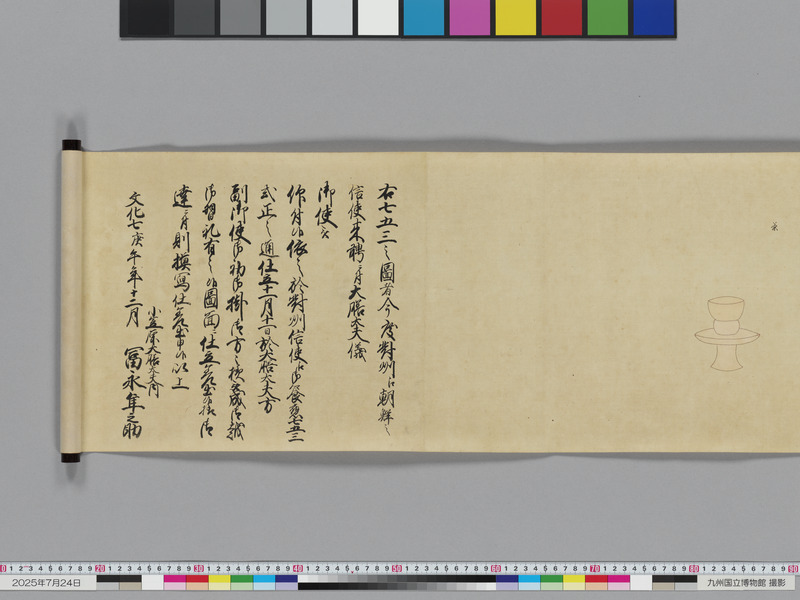 右七五三之圖者今度對州江朝鮮之
信使来聘ニ付大膳大夫儀
御使被
仰付候依之於對州信使江御饗應七五三
式正之通仕立十一月十一日於大膳大夫方
副御使御初御掛御方々様被成御越
御習礼有之候圖面仕立
達ニ付則模寫仕差出申候以上
文化七庚午年十二月
小笠原大膳大夫内
冨永隼之助
2025年7月24日
九州国立博物館 撮影